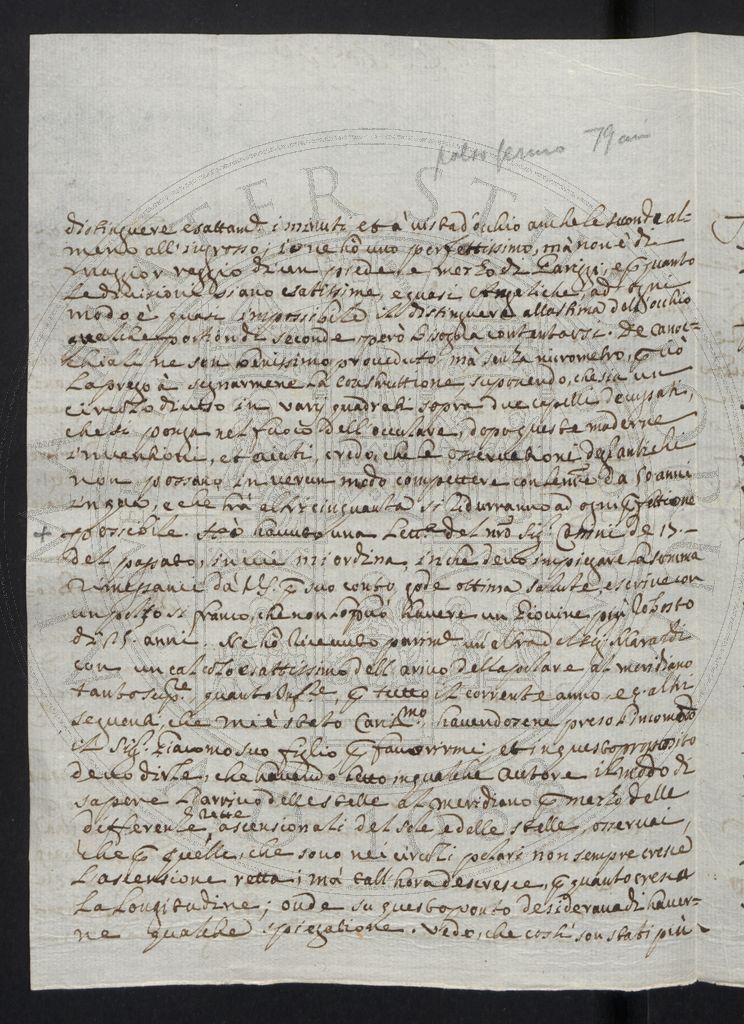 polso fermo 79 anni
distinguere esattamte i minuti, et à vista d'occhio anche le seconde al-
meno all'ingrosso; io ne hò uno perfettissimo, mà non è di
maggior raggio di un piede e mezzo di Parigi, e quanto
le divisioni siano esatissime, e quasi Angeliche, ad ogni
modo è quasi impossibile il distinguere alla stima dell'occhio
qualche portion di seconde, però bisogna contentarsi. De canoc-
chiali ne son benissimo proveduto, mà senza micrometro, ciò
la prego à segnarmene la construttione suponendo, che sia un
circolo diviso in varij quadreti sopra due capelli
che si ponga nel fuoco dell'occulare, dopo queste moderne
inventioni, et aiuti, credo, che le osservationi degl'antichi
non possano in verun modo competere con le da 50 anni
in quà, e che trà altri cinquanta si ridurranno ad ogni perfettione
+ possibile. Hò havuto una lettra del nro Sigr Cassini de 13.
del passato, in cui mi ordina, in che devo impiegare la somma
rimessami da V.S. suo conto, gode ottima salute, e scrive con
un polzo sì franco, che non lo può havere un Giovine più robosto
di 25 anni. Ne hò ricevuto parimte un'altra del Sigr Maraldi
con un calcolo esattissimo dell'arivo della polare al meridiano
tanto supre, quanto infre, tutto il corrente anno, e gl'altri
seguenti, che mi è stato Carismo, havendosene preso l'incomodo
il Sigr Giacomo suo figlio favorirmi, et in questo proposito
devo dirle, che havendo letto in qualche autore il modo di
sapere l'arrivo delle stelle al meridiano mezzo delle
differenze rette ascensionali del sole, e delle stelle, osservai,
che quelle, che sono nei circoli polari non sempre cresce
l'ascensione retta, mà tall'hora descresce, quanto cresca
la longitudine; onde su questo ponto desiderava di haver-
ne qualche spiegatione. Vedo, che costì son stati più